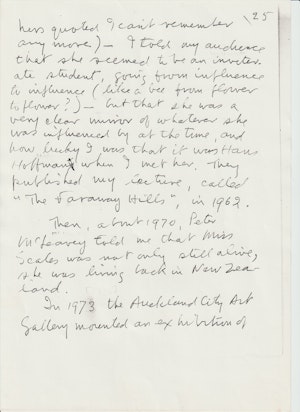 25
hers quoted I can't remember
any more) — I told my audience
that she seemed to be an inveter-
ate student, going from influence
to influence (like a bee from flower
to flower?) — but that she was a
very clear mirror of whatever she
was influenced by at the time, and
how lucky I was that it was Hans
Hoffman when I met her. They
published my lecture, called
"The Faraway Hills", in 1962.
Then, about 1970, Peter
told me that Miss
Scales was not only still alive,
she was living back in New Zea-
land.
In 1973 the Auckland City Art
Gallery mounted an exhibition of